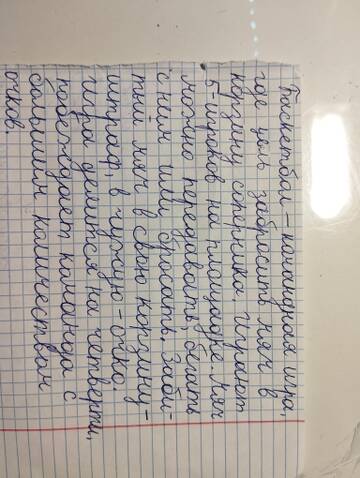 Баскетбол – командная игра,
где цель забросить мяч в
корзину соперника. Играют
5-игроков на площадке. Мяч
можно передавать, бегать
с ним или бросать. Заби-
тый мяч в свою корзину –
штраф, в чужую – очко.
Игра делится на четверти,
побеждает команда с
большим количеством
очков.